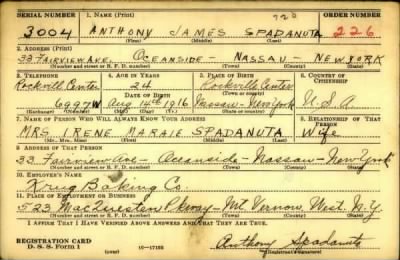 SERIAL NUMBER 1. NAME (Print) ORDER NUMBER
3004 ANTHONY JAMES SPADANUTA 226
(First) (Middle) (Last)
2. ADDRESS (Print)
33 FAIRVIEW AVE. OCEANSIDE - NASSAU - NEW YORK
(Number and street or R. F. D. number) (Town) (County) (State)
3. TELEPHONE 4. AGE IN YEARS 5. PLACE OF BIRTH 6. COUNTRY OF CITIZENSHIP
Rockville Center 24 Rockville Center
DATE OF BIRTH
6992W Aug 14th 1916 Nassau - New York U.S.A.
(Exchange) (Number) (Mo.) (Day) (Yr.) (State or country)
7. NAME OF PERSON WHO WILL ALWAYS KNOW YOUR ADDRESS 8. RELATIONSHIP OF THAT PERSON
MRS. IRENE MARAIE SPADANUTA Wife
(Mr., Mrs., Miss) (First) (Middle) (Last)
9. ADDRESS OF THAT PERSON
33 Fairview Ave - Oceanside - Nassau - New York
(Number and street or R. F. D. number) (Town) (County) (State)
10. EMPLOYER'S NAME
Krug Baking Co.
11. PLACE OF EMPLOYMENT OR BUSINESS
523 MacQuesten Pkway - Mt Vernon, West. N.Y.
(Number and street or R. F. D. number) (Town) (County) (State)
I AFFIRM THAT I HAVE VERIFIED ABOVE ANSWERS AND THAT THEY ARE TRUE.
REGISTRATION CARD
D. S. S. Form 1 Anthony Spadanuta
(over)